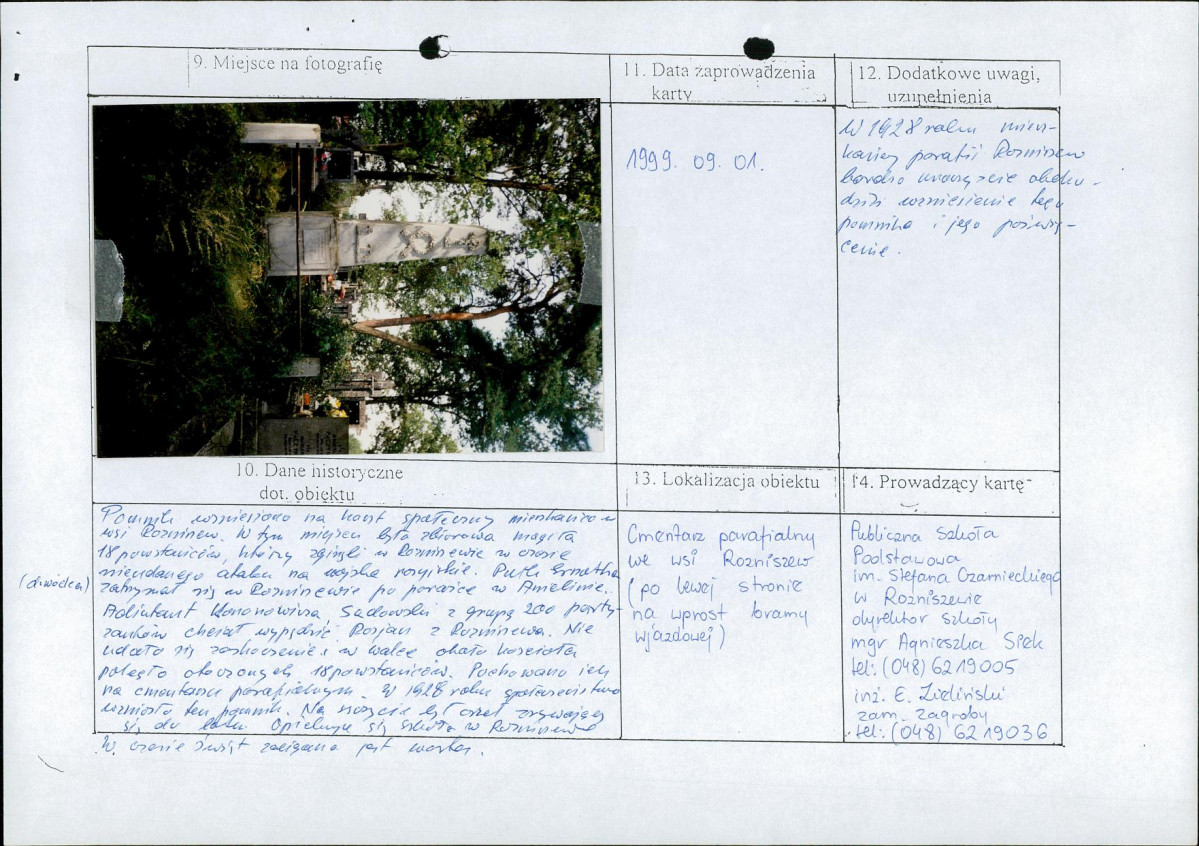 9. Miejsce na fotografię
11. Data zaprowadzenia
karty
1999. 09. 01.
12. Dodatkowe uwagi,
uzupełnienia
W 1928 roku miesz-
kańcy parafii Rozniszew
bardzo uroczyście obcho-
dzili wzniesienie tego
pomnika i jego poświę-
cenie.
10. Dane historyczne
dot. obiektu
Pomnik wzniesiono na koszt społeczny mieszkańców
wsi Rozniszew. W tym miejscu była zbiorowa mogiła
18 powstańców, którzy zginęli w Rozniszewie w czasie
nieudanego ataku na wojska rosyjskie. Pułk
(dowódca)
zatrzymał się w Rozniszewie po porażce w Anielinie.
Adiutant Kononowicza Sadowski z grupą 200 party-
zantów chciał wypędzić Rosjan z Rozniszewa. Nie
udało się zaskoczenie i w walce około kościoła
poległo otoczonych 18 powstańców. Pochowano ich
na cmentarzu parafialnym. W 1928 roku społeczeństwo
wzniosło ten pomnik. Na szczycie był orzeł zrywający
się do lotu. Opiekuje się szkoła w Rozniszewie
W czasie świąt zaciągana jest warta.
13. Lokalizacja obiektu
Cmentarz parafialny
we wsi Rozniszew
(po lewej stronie
na wprost bramy
wjazdowej)
14. Prowadzący kartę
Publiczna Szkoła
Podstawowa
im. Stefana Czarnieckiego
w Rozniszewie
dyrektor szkoły
mgr Agnieszka
tel: (048) 6219005
inż. E. Zieliński
zam. Zagroby
tel: (048) 6219036